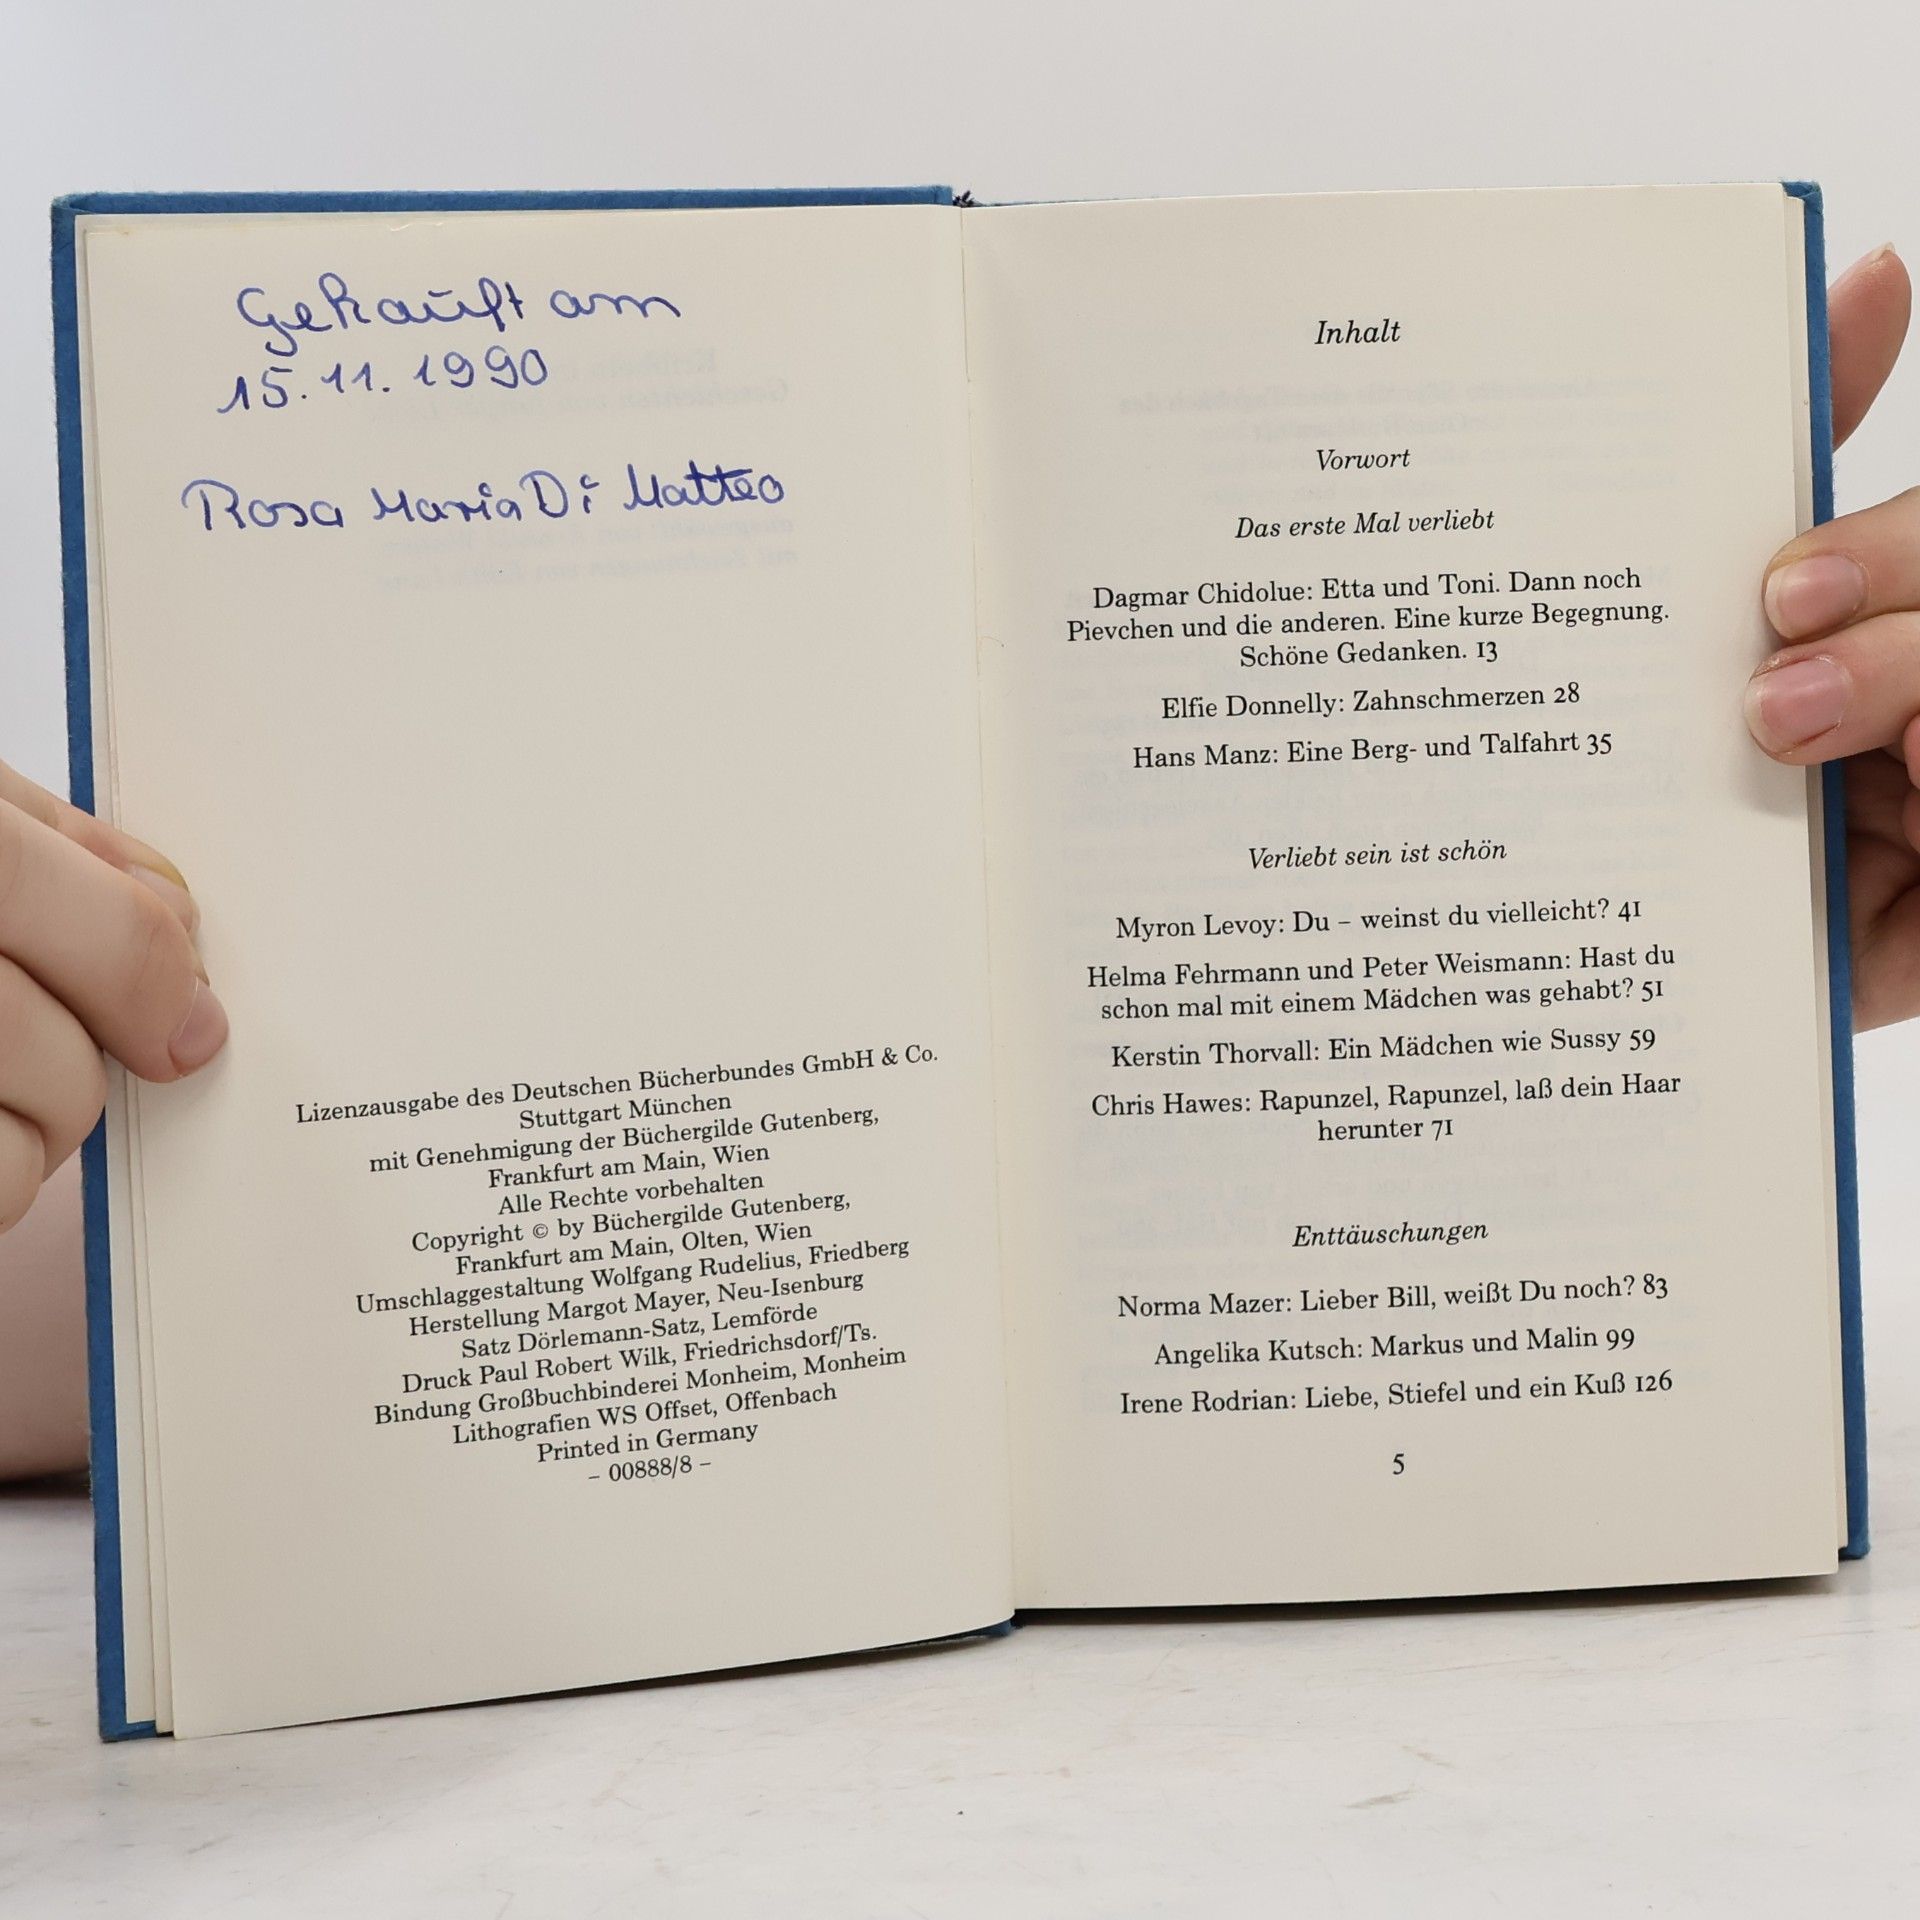 Gekauft am
15.11.1990
Rosa Maria Di Matteo
Lizenzausgabe des Deutschen Bücherbundes GmbH & Co.
Stuttgart München
mit Genehmigung der Büchergilde Gutenberg,
Frankfurt am Main, Wien
Alle Rechte vorbehalten
Copyright © by Büchergilde Gutenberg,
Frankfurt am Main, Olten, Wien
Umschlaggestaltung Wolfgang Rudelius, Friedberg
Herstellung Margot Mayer, Neu-Isenburg
Satz Dörlemann-Satz, Lemförde
Druck Paul Robert Wilk, Friedrichsdorf/Ts.
Bindung Großbuchbinderei Monheim, Monheim
Lithografien WS Offset, Offenbach
Printed in Germany
– 00888/8 –
Inhalt
Vorwort
Das erste Mal verliebt
Dagmar Chidolue: Etta und Toni. Dann noch
Pievchen und die anderen. Eine kurze Begegnung.
Schöne Gedanken. 13
Elfie Donnelly: Zahnschmerzen 28
Hans Manz: Eine Berg- und Talfahrt 35
Verliebt sein ist schön
Myron Levoy: Du – weinst du vielleicht? 41
Helma Fehrmann und Peter Weismann: Hast du
schon mal mit einem Mädchen was gehabt? 51
Kerstin Thorvall: Ein Mädchen wie Sussy 59
Chris Hawes: Rapunzel, Rapunzel, laß dein Haar
herunter 71
Enttäuschungen
Norma Mazer: Lieber Bill, weißt Du noch? 83
Angelika Kutsch: Markus und Malin 99
Irene Rodrian: Liebe, Stiefel und ein Kuß 126
5